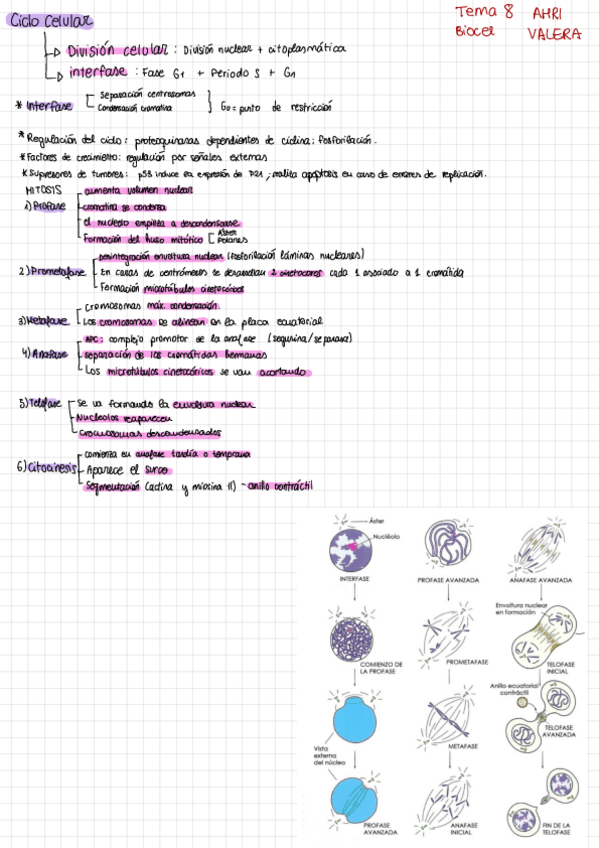 Ciclo Celular
Tema 8 AHRI
Biocel VALERA
División celular : División nuclear + citoplasmática
interfase : Fase G1 + Periodo S + G2
* Interfase
Separación centrosomas
Condensación cromatina
G0 = punto de restricción
* Regulación del ciclo : proteoquinasas dependientes de ciclina: fosforilación.
* Factores de crecimiento: regulación por señales externas
* Supresores de tumores: p53 induce la expresión de P21, realita apoptosis en caso de errores de replicación.
MITOSIS
1) Profase
aumenta volumen nuclear
cromatina se condensa
el nucleolo empieza a descondensarse
Formación del huso mitótico
Aster
Polares
2) Prometafase
Desintegración envoltura nuclear (fosforilación láminas nucleares)
En caras de centrómeros se desarrollan 2 cinetocoros cada 1 asociado a 1 cromátida
Formación microtúbulos cinetocóricos
3) Metafase
Cromosomas máx. condensación.
Los cromosomas se alinean en la placa ecuatorial
4) Anafase
APC: complejo promotor de la anafase (segurina/separasa)
separación de las cromátidas hermanas
Los microtúbulos cinetocóricos se van acortando
5) Telofase
Se va formando la envoltura nuclear
Nucleolos reaparecen
Cromosomas descondensados
6) Citocinesis
comienza en anafase tardía o temprana
Aparece el surco
Segmentación (actina y miosina II) - anillo contráctil
Áster
Nucléolo
INTERFASE
PROFASE AVANZADA
ANAFASE AVANZADA
Envoltura nuclear
en formación
COMIENZO DE
LA PROFASE
PROMETAFASE
TELOFASE
INICIAL
Anillo ecuatorial
contráctil
TELOFASE
AVANZADA
METAFASE
Vista
externa
del núcleo
PROFASE
AVANZADA
ANAFASE
INICIAL
FIN DE LA
TELOFASE